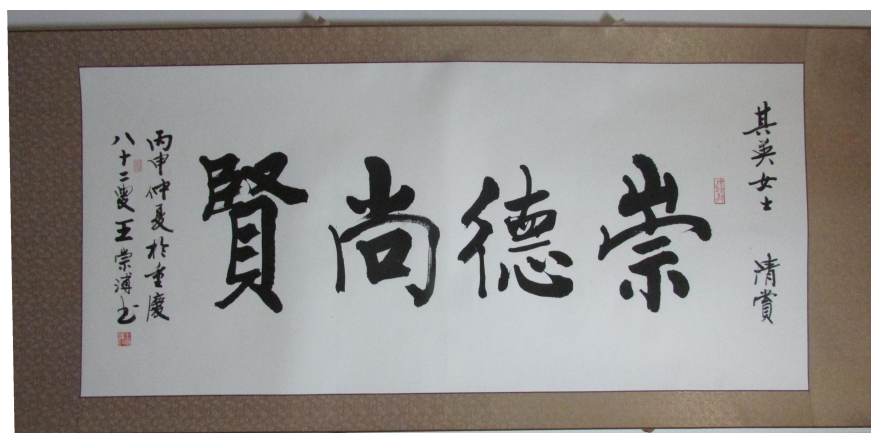 其英女士 清赏
崇德尚賢
丙申仲夏於重慶
八十二叟王崇溥书